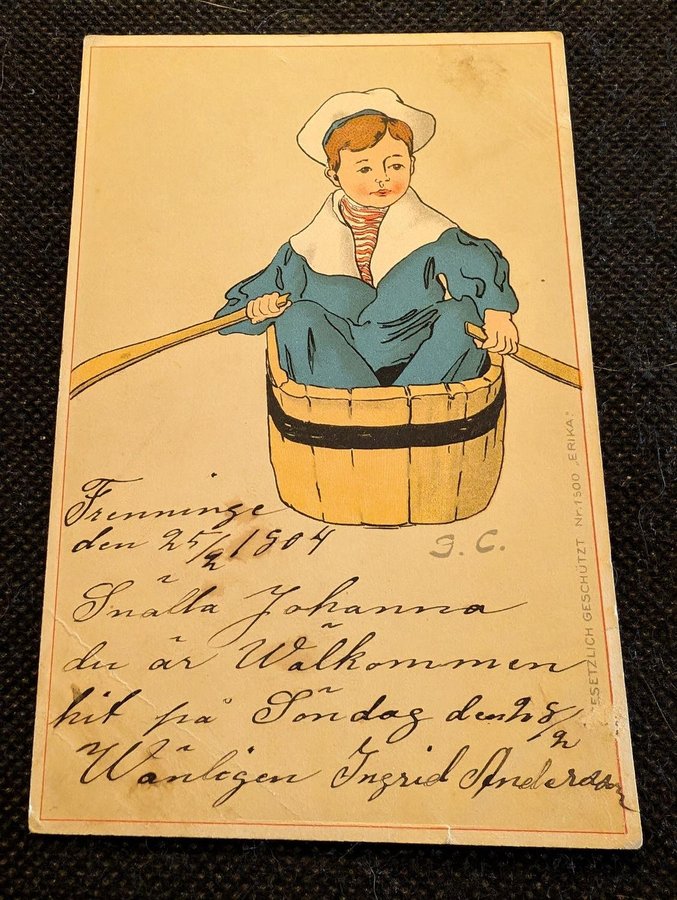 Frenninge
den 25/2 1904
J. C.
Snälla Johanna
du är Wälkommen
hit på Söndag den 28/2
Wänligen Ingrid Andersson
ESETZLICH GESCHÜTZT Nr. 1300 „ERIKA"